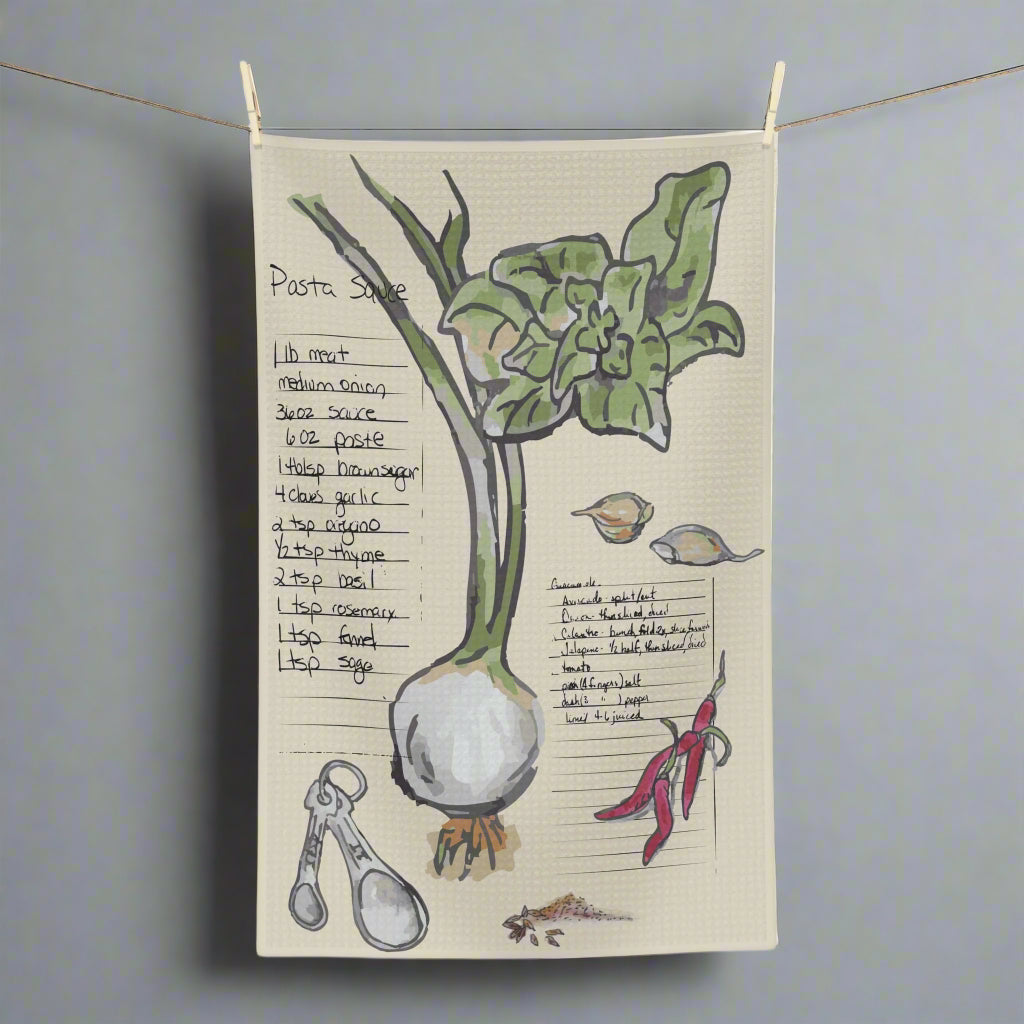 Pasta Sauce
1 lb meat
medium onion
36oz sauce
6oz paste
1 tblsp brown sugar
4 cloves garlic
2 tsp
1/2 tsp thyme
2 tsp basil
1 tsp rosemary
1 tsp fennel
1 tsp sage
Guacamole
Avocado - split/cut
thin sliced, diced
Cilantro - bunch, fold 2x, slice
Jalapeno - 1/2 half, thin sliced, diced
tomato
pinch (4 fingers) salt
dash (3 " ) pepper
limes 4-6 juiced